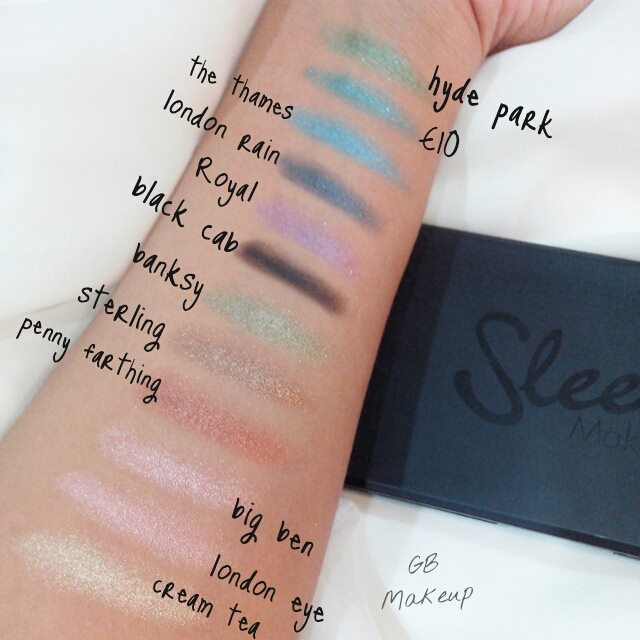 hyde park
€10
the thames
london rain
Royal
black cab
banksy
sterling
penny farthing
big ben
london eye
cream tea
Slee
Mak
GB
Makeup